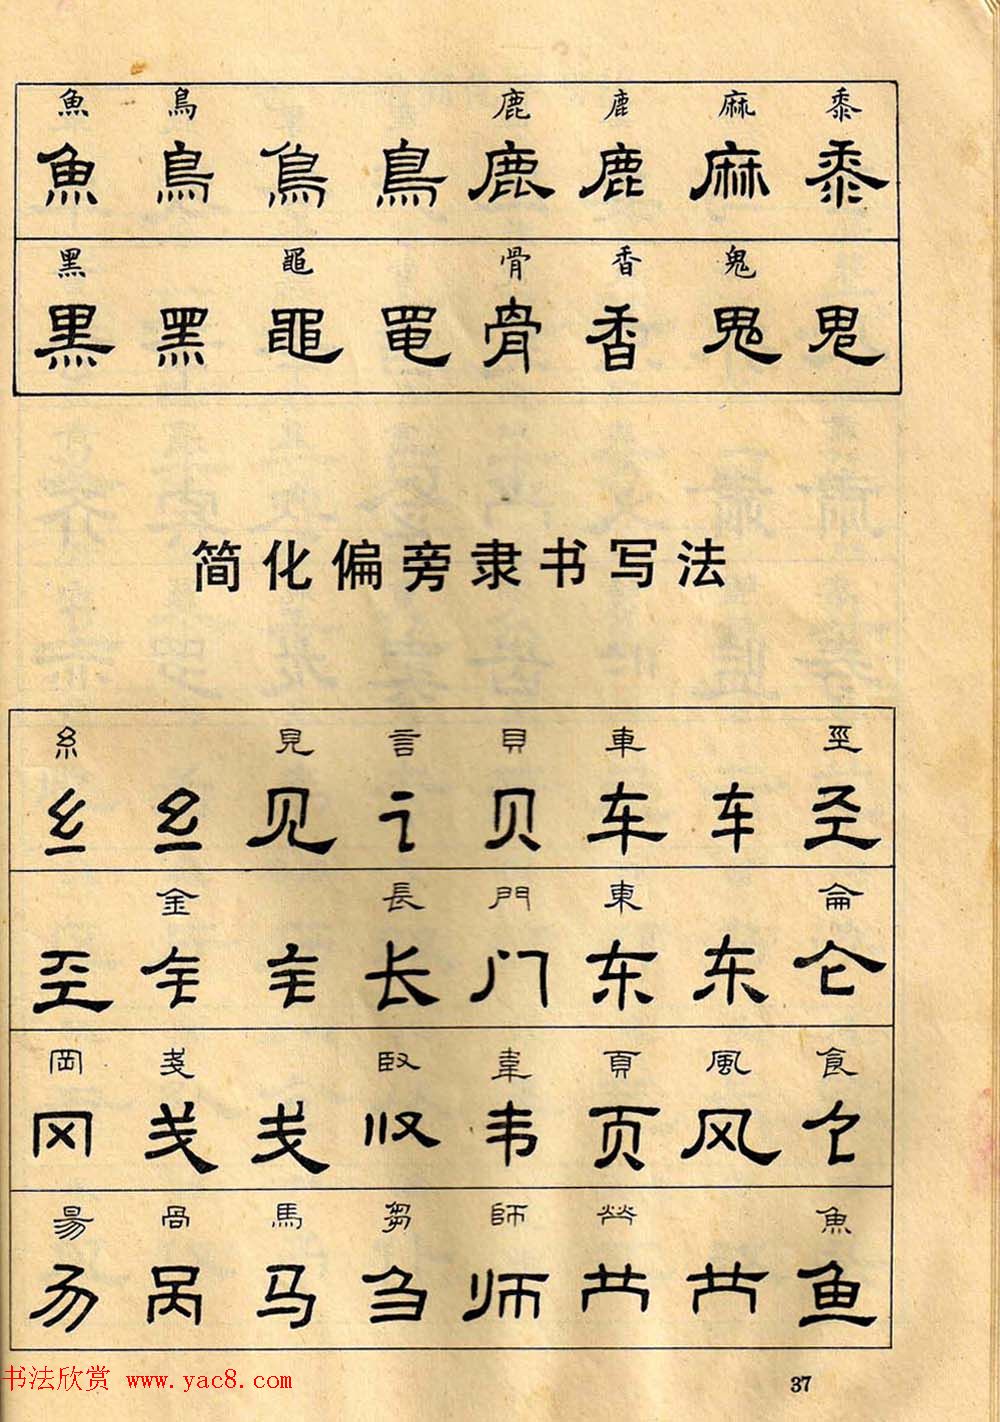 魚 鳥 鹿 鹿 麻 黍
魚 鳥 鳥 鳥 鹿 鹿 麻 黍
黑 黽 骨 香 鬼
黑 黑 黽 黽 骨 香 鬼 鬼
简化偏旁隶书写法
糸 見 言 貝 車 巠
纟 纟 见 讠 贝 车 车 𢀖
金 長 門 東 侖
𢀖 钅 钅 长 门 东 东 仑
岡 戔 臤 韋 頁 風 食
冈 戋 戋 〢又 韦 页 风 饣
昜 咼 馬 芻 師 𤇾 魚
𠃓 呙 马 刍 师 艹 艹 鱼
书法欣赏 www.yac8.com
37